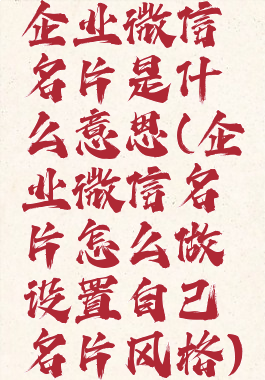 企业微信
名片是什
么意思(企
业微信名
片怎么做
设置自己
名片风格)